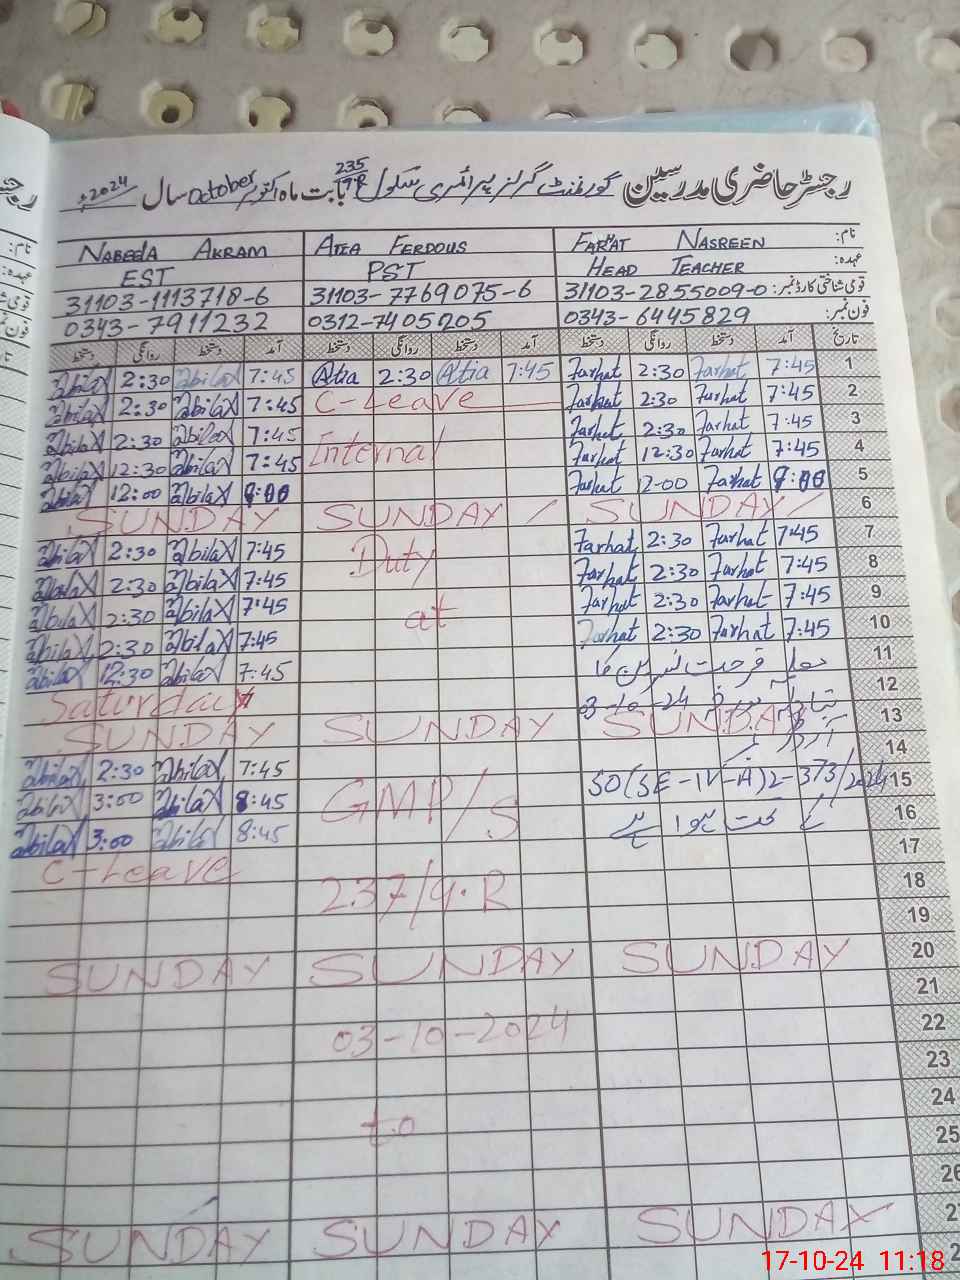 رجسٹر حاضری مدرسین گورنمنٹ گرلز پرائمری سکول 235/9R بابت ماہ اکتوبر October سال 2024ء
نام: FARHAT NASREEN ATIA FERDOUS NABEELA AKRAM
عہدہ: HEAD TEACHER PST EST
قومی شناختی کارڈ نمبر: 31103-2855009-0 31103-7769075-6 31103-1113718-6
فون نمبر: 0343-6445829 0312-7405205 0343-7911232
تاریخ آمد دستخط روانگی دستخط آمد دستخط روانگی دستخط آمد دستخط روانگی دستخط
1 7:45 Farhat 2:30 Farhat 7:45 Atia 2:30 Atia 7:45 2:30
2 7:45 Farhat 2:30 Farhat C-Leave 7:45 2:30
3 7:45 Farhat 2:30 Farhat Internal 7:45 2:30
4 7:45 Farhat 12:30 Farhat 7:45 12:30
5 Farhat 2-00 Farhat 12:00
6 SUNDAY SUNDAY SUNDAY
7 7:45 Farhat 2:30 Farhat Duty 7:45 2:30
8 7:45 Farhat 2:30 Farhat 7:45 2:30
9 7:45 Farhat 2:30 Farhat at 7:45 2:30
10 7:45 Farhat 2:30 Farhat 7:45 2:30
11 فرحت نسرین کا 7:45 12:30
12 تبادلہ 03-10-24 Saturday
13 SUNDAY SUNDAY SUNDAY
14 آرڈر نمبر 7:45 2:30
15 SO(SE-IV-A)2-373/2024 GMP/S 8:45 3:00
16 کے تحت ہوا ہے 8:45 3:00
17 C-Leave
18 237/9.R
19
20 SUNDAY SUNDAY SUNDAY
21
22 03-10-2024
23
24
25 to
26
27 SUNDAY SUNDAY SUNDAY
17-10-24 11:18